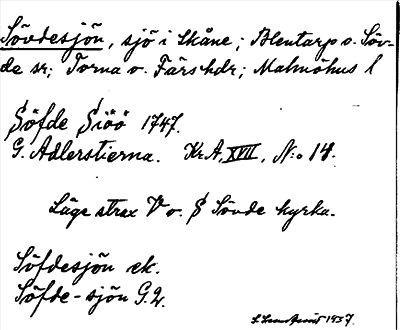 Sövdesjön, sjö i Skåne; Blentarp o. Söv-
de sr; Torna o. Färs hdr; Malmöhus l
Söfde Siöö 1747.
G. Adlerstierna. Kr.A, XVII, N:o 14.
Läge strax V o. S Sövde kyrka.
Söfdesjön ek.
Söfde-sjön G.2.
1937.